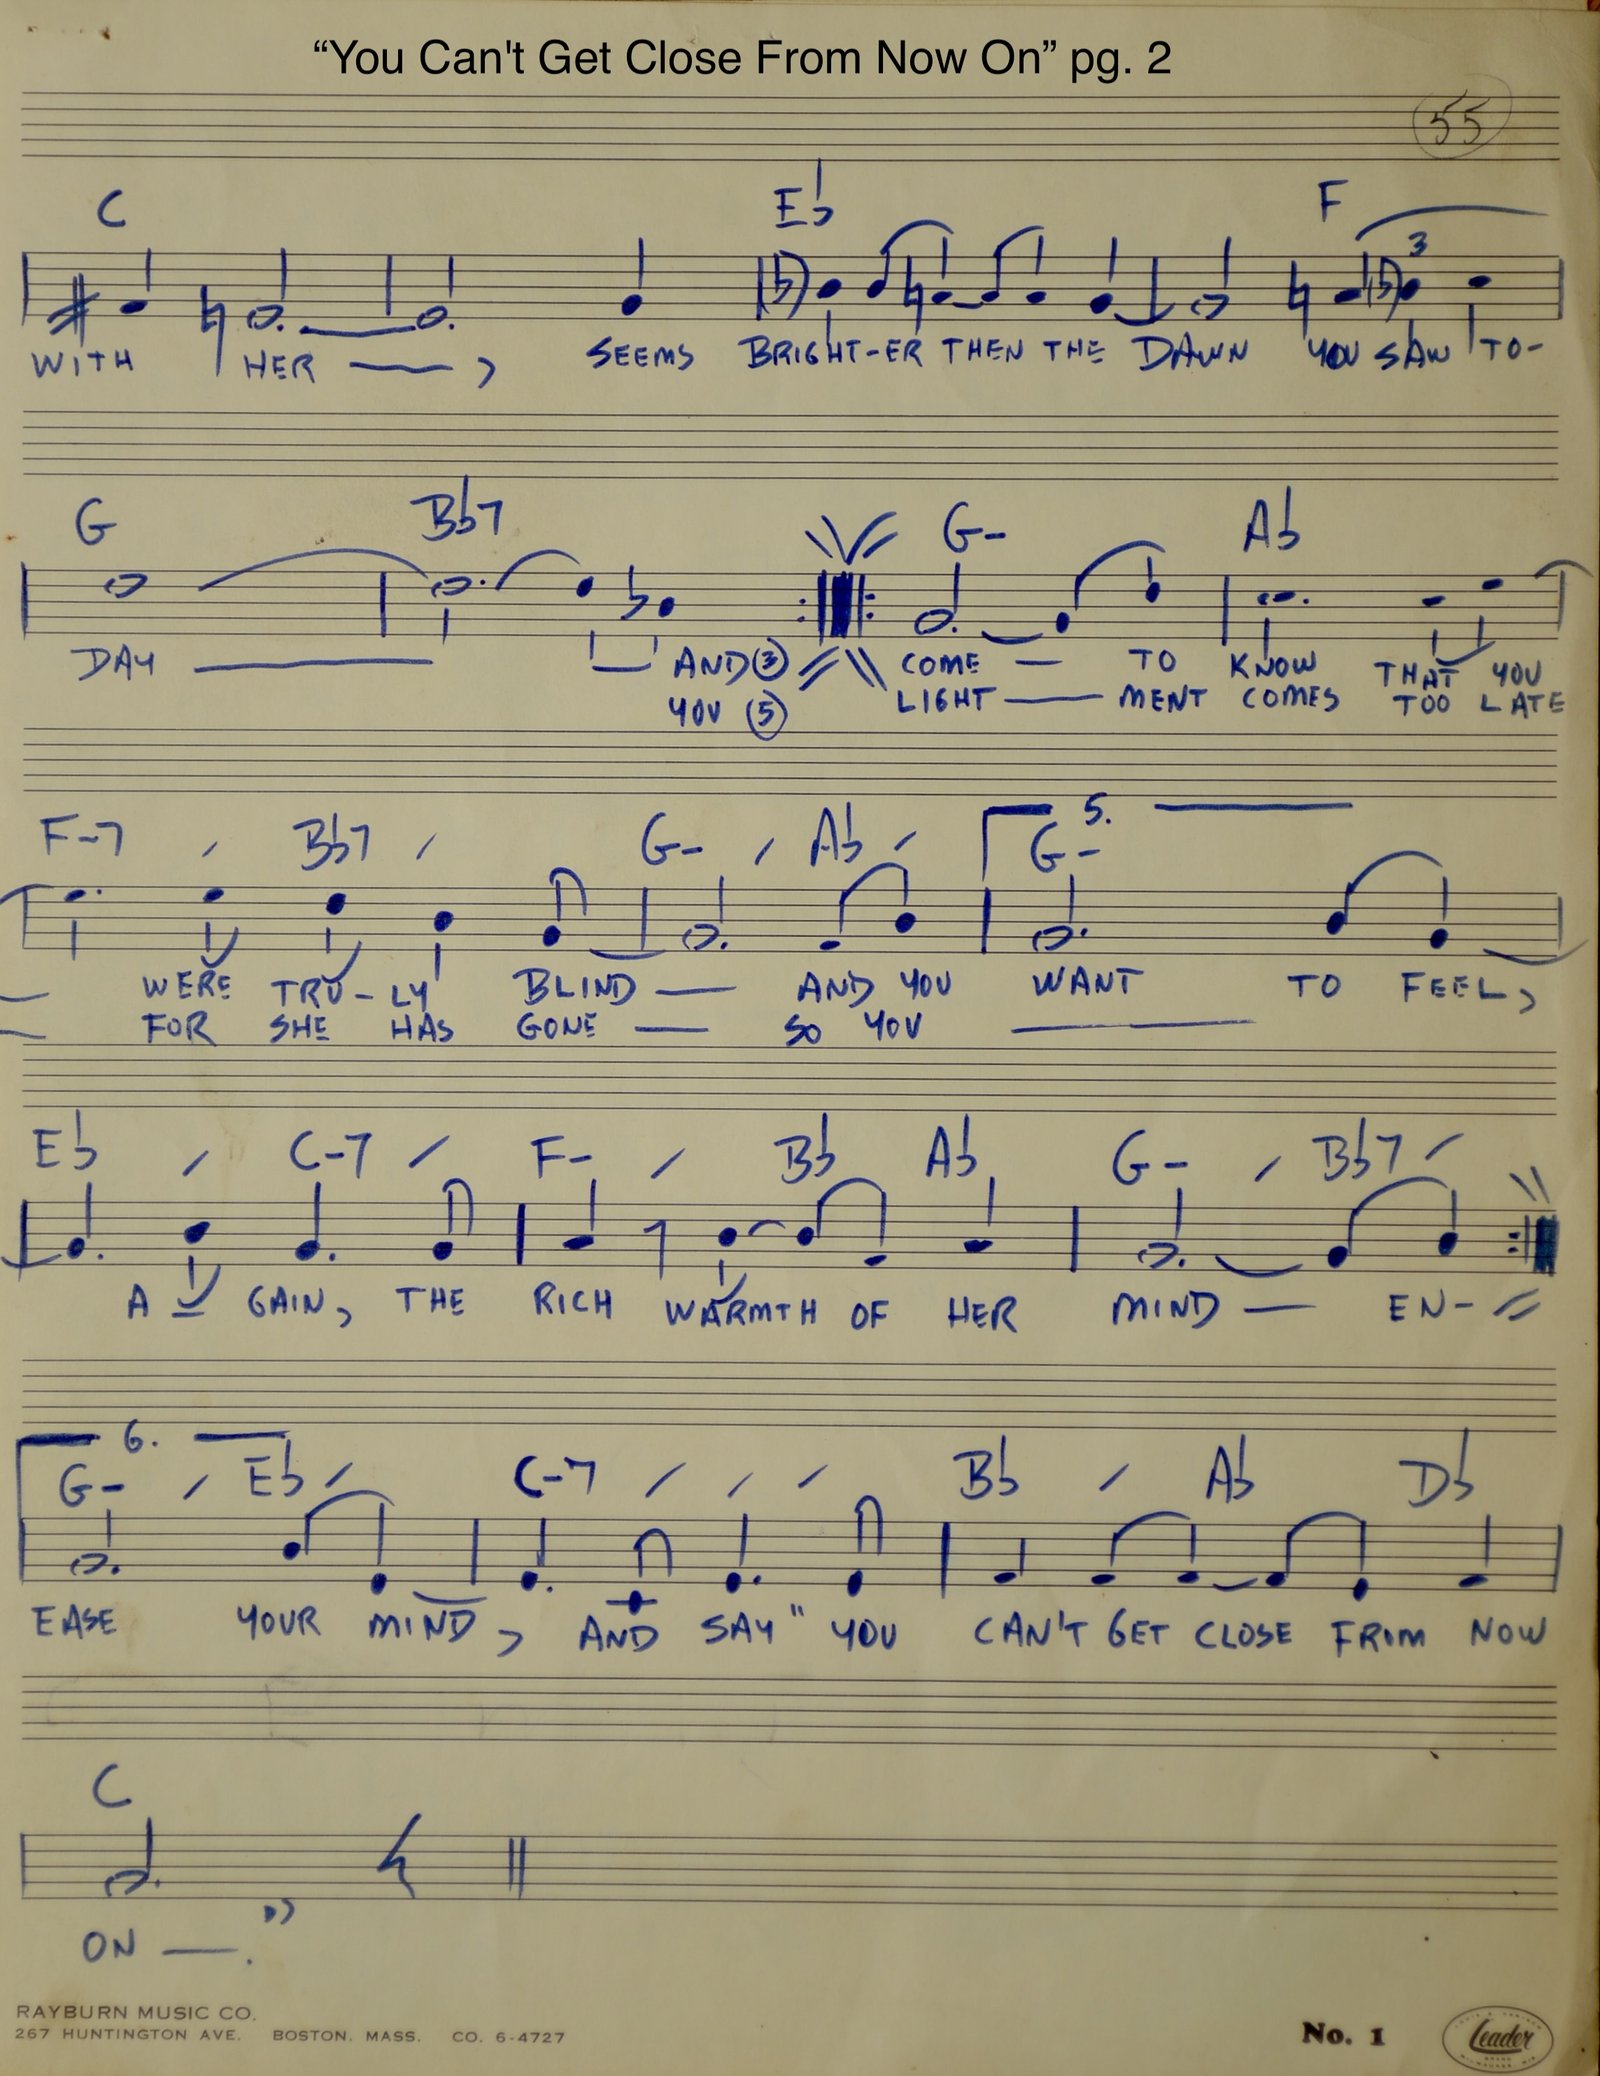 “You Can't Get Close From Now On” pg. 2
55
C E♭ F
3
WITH HER —, SEEMS BRIGHT-ER THEN THE DAWN YOU SAW TO-
G B♭7 G- A♭
DAY — AND (3) COME — TO KNOW THAT YOU
YOU (5) LIGHT — MENT COMES TOO LATE
5.
F-7 / B♭7 / G- / A♭ / G-
— WERE TRU-LY BLIND — AND YOU WANT TO FEEL,
— FOR SHE HAS GONE — SO YOU —
E♭ / C-7 / F- / B♭ A♭ G- / B♭7 /
A - GAIN, THE RICH WARMTH OF HER MIND — EN-
6.
G- / E♭ / C-7 / / / B♭ / A♭ D♭
EASE YOUR MIND, AND SAY " YOU CAN'T GET CLOSE FROM NOW
C
ON —. "
RAYBURN MUSIC CO.
267 HUNTINGTON AVE. BOSTON. MASS. CO. 6-4727
No. 1
Leader